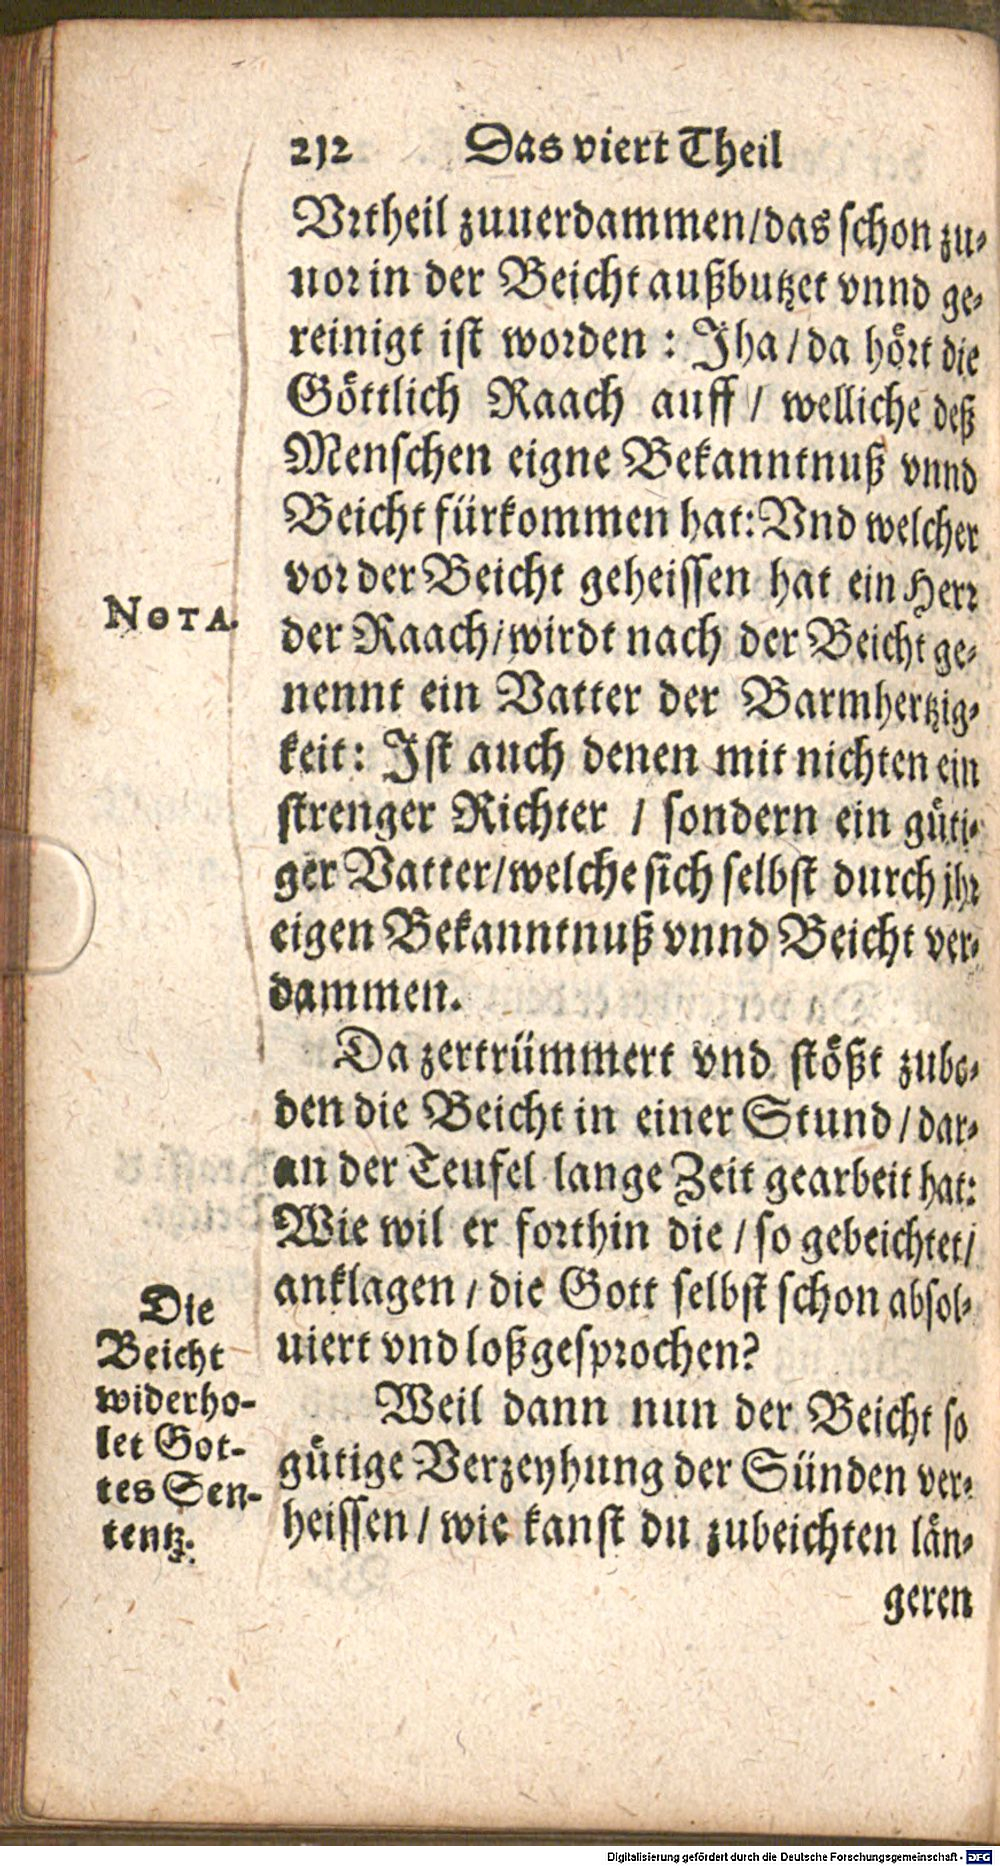 212 Das viert Theil
Vrtheil zuuerdammen/das schon zu-
uor in der Beicht außbutzet vnnd ge-
reinigt ist worden : Jha / da hoͤrt die
Goͤttlich Raach auff / welliche deß
Menschen eigne Bekanntnuß vnnd
Beicht fürkommen hat: Vnd welcher
vor der Beicht geheissen hat ein Herr
NOTA.
der Raach/wirdt nach der Beicht ge-
nennt ein Vatter der Barmhertzig-
keit: Jst auch denen mit nichten ein
strenger Richter / sondern ein guͤti-
ger Vatter/welche sich selbst durch jhr
eigen Bekanntnuß vnnd Beicht ver-
dammen.
Da zertrümmert vnd stoͤßt zubo-
den die Beicht in einer Stund / dar-
an der Teufel lange Zeit gearbeit hat:
Wie wil er forthin die / so gebeichtet/
anklagen / die Gott selbst schon absol-
uiert vnd loßgesprochen?
Die
Beicht
widerho-
let Got-
tes Sen-
tentz.
Weil dann nun der Beicht so
guͤtige Verzeyhung der Sünden ver-
heissen / wie kanst du zubeichten laͤn-
geren
Digitalisierung gefördert durch die Deutsche Forschungsgemeinschaft - DFG